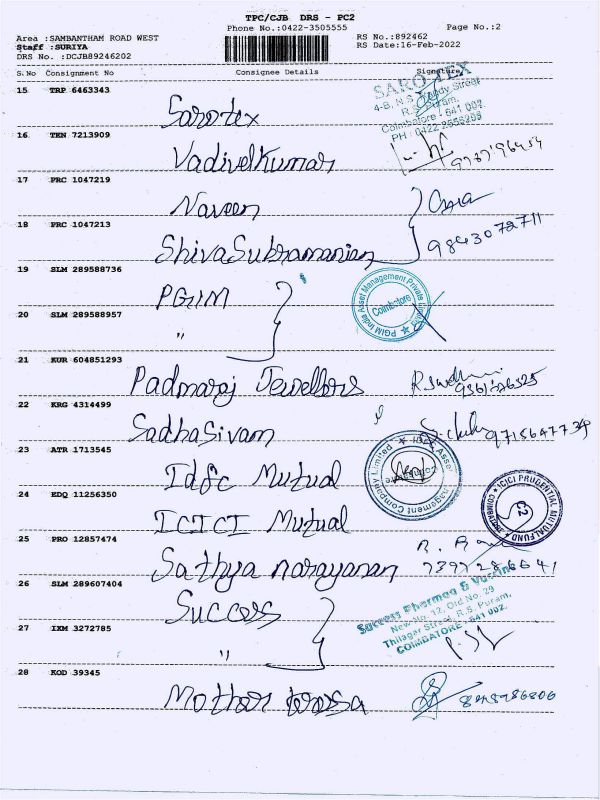 TPC/CJB DRS - PC2
Phone No.:0422-3505555
Page No.:2
Area :SAMBANTHAM ROAD WEST
RS No.:892462
Staff :SURIYA
RS Date:16-Feb-2022
DRS No. :DCJB89246202
S.No Consignment No Consignee Details Signature
15 TRP 6463343
Sarotex
SARO TEX
Street
R.S. Puram,
Coimbatore - 641 002.
PH : 0422
16 TEN 7213909
Vadivelkumar
17 PRC 1047219
Naveen
18 PRC 1047213
ShivaSubramanian
9843072711
19 SLM 289588736
PGIM
PGIM India Asset Management Private Limited
Coimbatore
20 SLM 289588957
"
21 KUR 604851293
Padmaraj Jewellers
22 KRG 4314499
Sadhasivam
9715647739
23 ATR 1713545
Idfc Mutual
IDFC Asset Management Company Limited
24 EDQ 11256350
ICICI Mutual
ICICI PRUDENTIAL MUTUAL FUND
25 PRO 12857474
Sathya narayanan
26 SLM 289607404
Success
Success Pharma & Vaccine
New No. 12, Old No. 29
Thilagar Street, R.S. Puram,
COIMBATORE - 641 002.
27 IXM 3272785
"
28 KOD 39345
Mother teresa